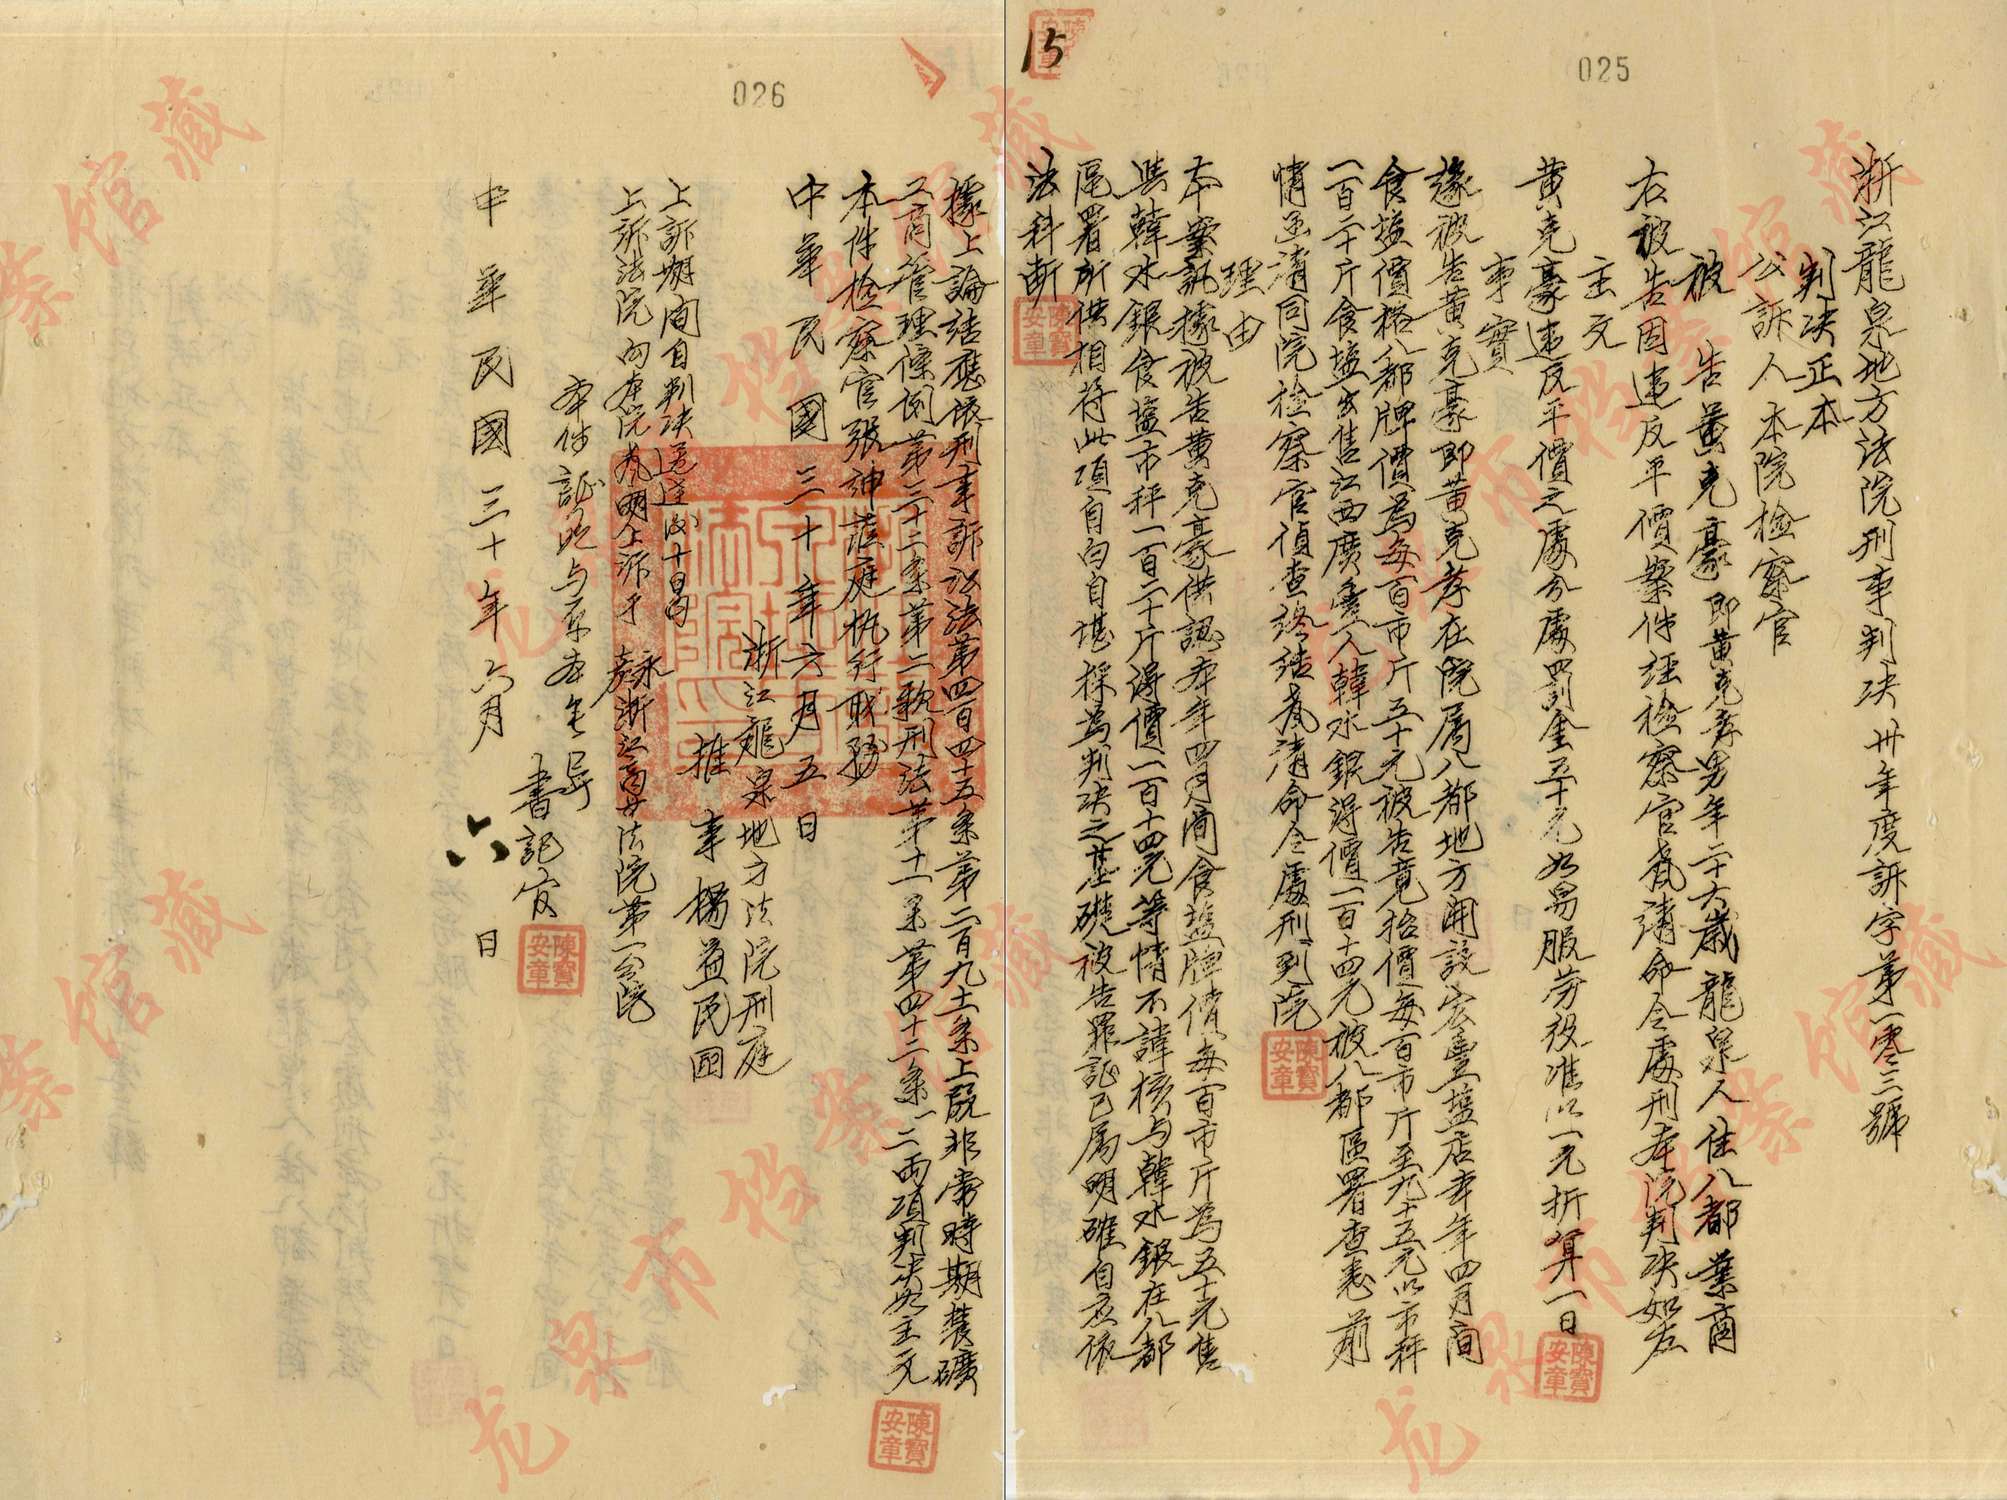 025
15
浙江龍泉地方法院刑事判決 卅年度訴字第一零三號
判決正本
公訴人本院檢察官
被告黃克豪即黃克孝男年二十六歲龍泉人住八都業商
右被告因違反平價案件經檢察官聲請命令處刑本院判決如左
主文
黃克豪違反平價之處分處罰金五十元如易服勞役准以一元折算一日
事實
緣被告黃克豪即黃克孝在院屬八都地方開設宏豐塩店本年四月間
食塩價格八都牌價為每百市斤五十元被告竟抬價每百市斤至九十五元以市秤
一百二十斤食塩出售江西廣豐人韓水銀得價一百十四元被八都區署查悉前
情函請同院檢察官偵查終結聲請命令處刑到院
理由
本案訊據被告黃克豪供認本年四月間食塩牌價每百市斤為五十元售
與韓水銀食塩市秤一百二十斤得價一百十四元等情不諱核与韓水銀在八都
區署所供相符此項自白自堪採為判決之基礎被告罪証已屬明確自應依
法科斷
陳寶安章
026
據上論結應依刑事訴訟法第四百四十五条第二百九十一条上段非常時期農礦
工商管理條例第三十二条第二款刑法第十一条第四十二条一二兩項判決如主文
本件檢察官張紳蒞庭執行職務
中華民國三十年六月五日
浙江龍泉地方法院刑庭
推事 楊益民 囸
上訴期间自判決送達後十日內
上訴法院向本院聲明上訴于永嘉浙江高等法院第一分院
本件証明与原本無異
書記官
陳寶安章
中華民國三十年六月六日
龙泉市档案馆藏